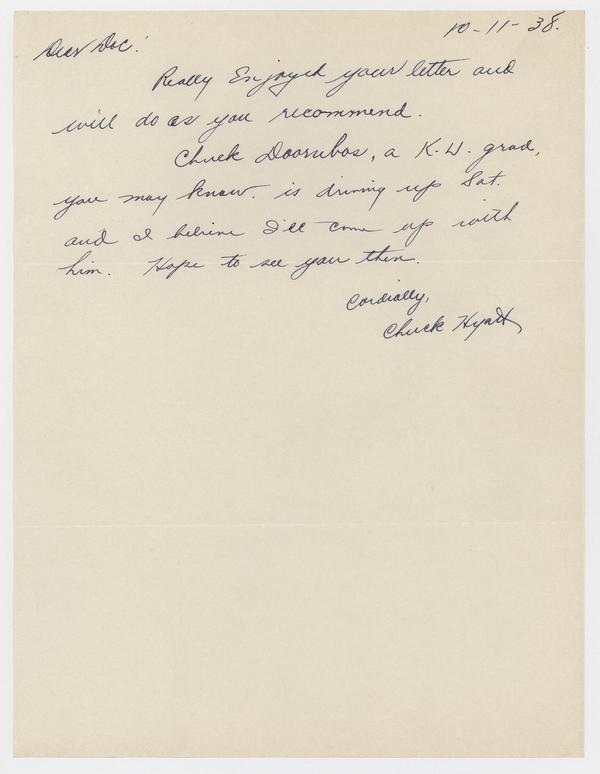 10-11-38.
Dear Doc!
Really Enjoyed your letter and
will do as you recommend.
Chuck Doornbos, a K.W. grad,
you may know. is driving up Sat.
and I believe I'll come up with
him. Hope to see you then.
Cordially,
Chuck Hyatt